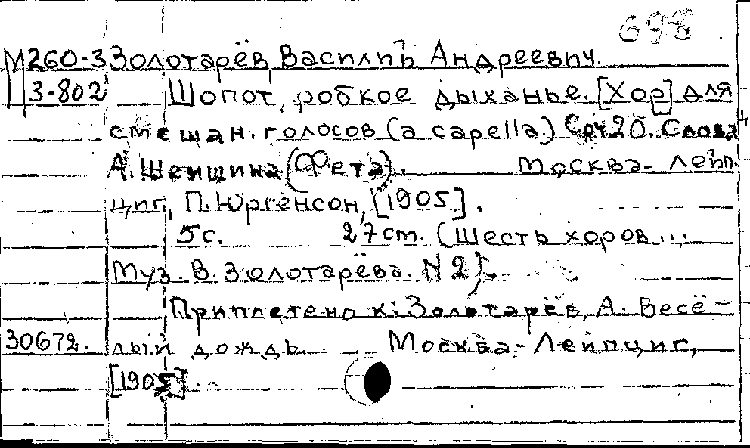 698
М260-3 Золотарёв, Василий Андреевич.
З-802 Шопот, робкое дыханье. [Хор] для
смешан. голосов (a capella.) Соч. 20. Слова
А. Шеншина (Фета). Москва- Лейп-
циг, П. Юргенсон, [1905].
5с. 27cm. (Шесть хоров...
Муз. В. Золотарёва. N 2).
Приплетено к: Золотарев, А. Весё-
30672. лый дождь. Москва- Лейпциг,
[1905].